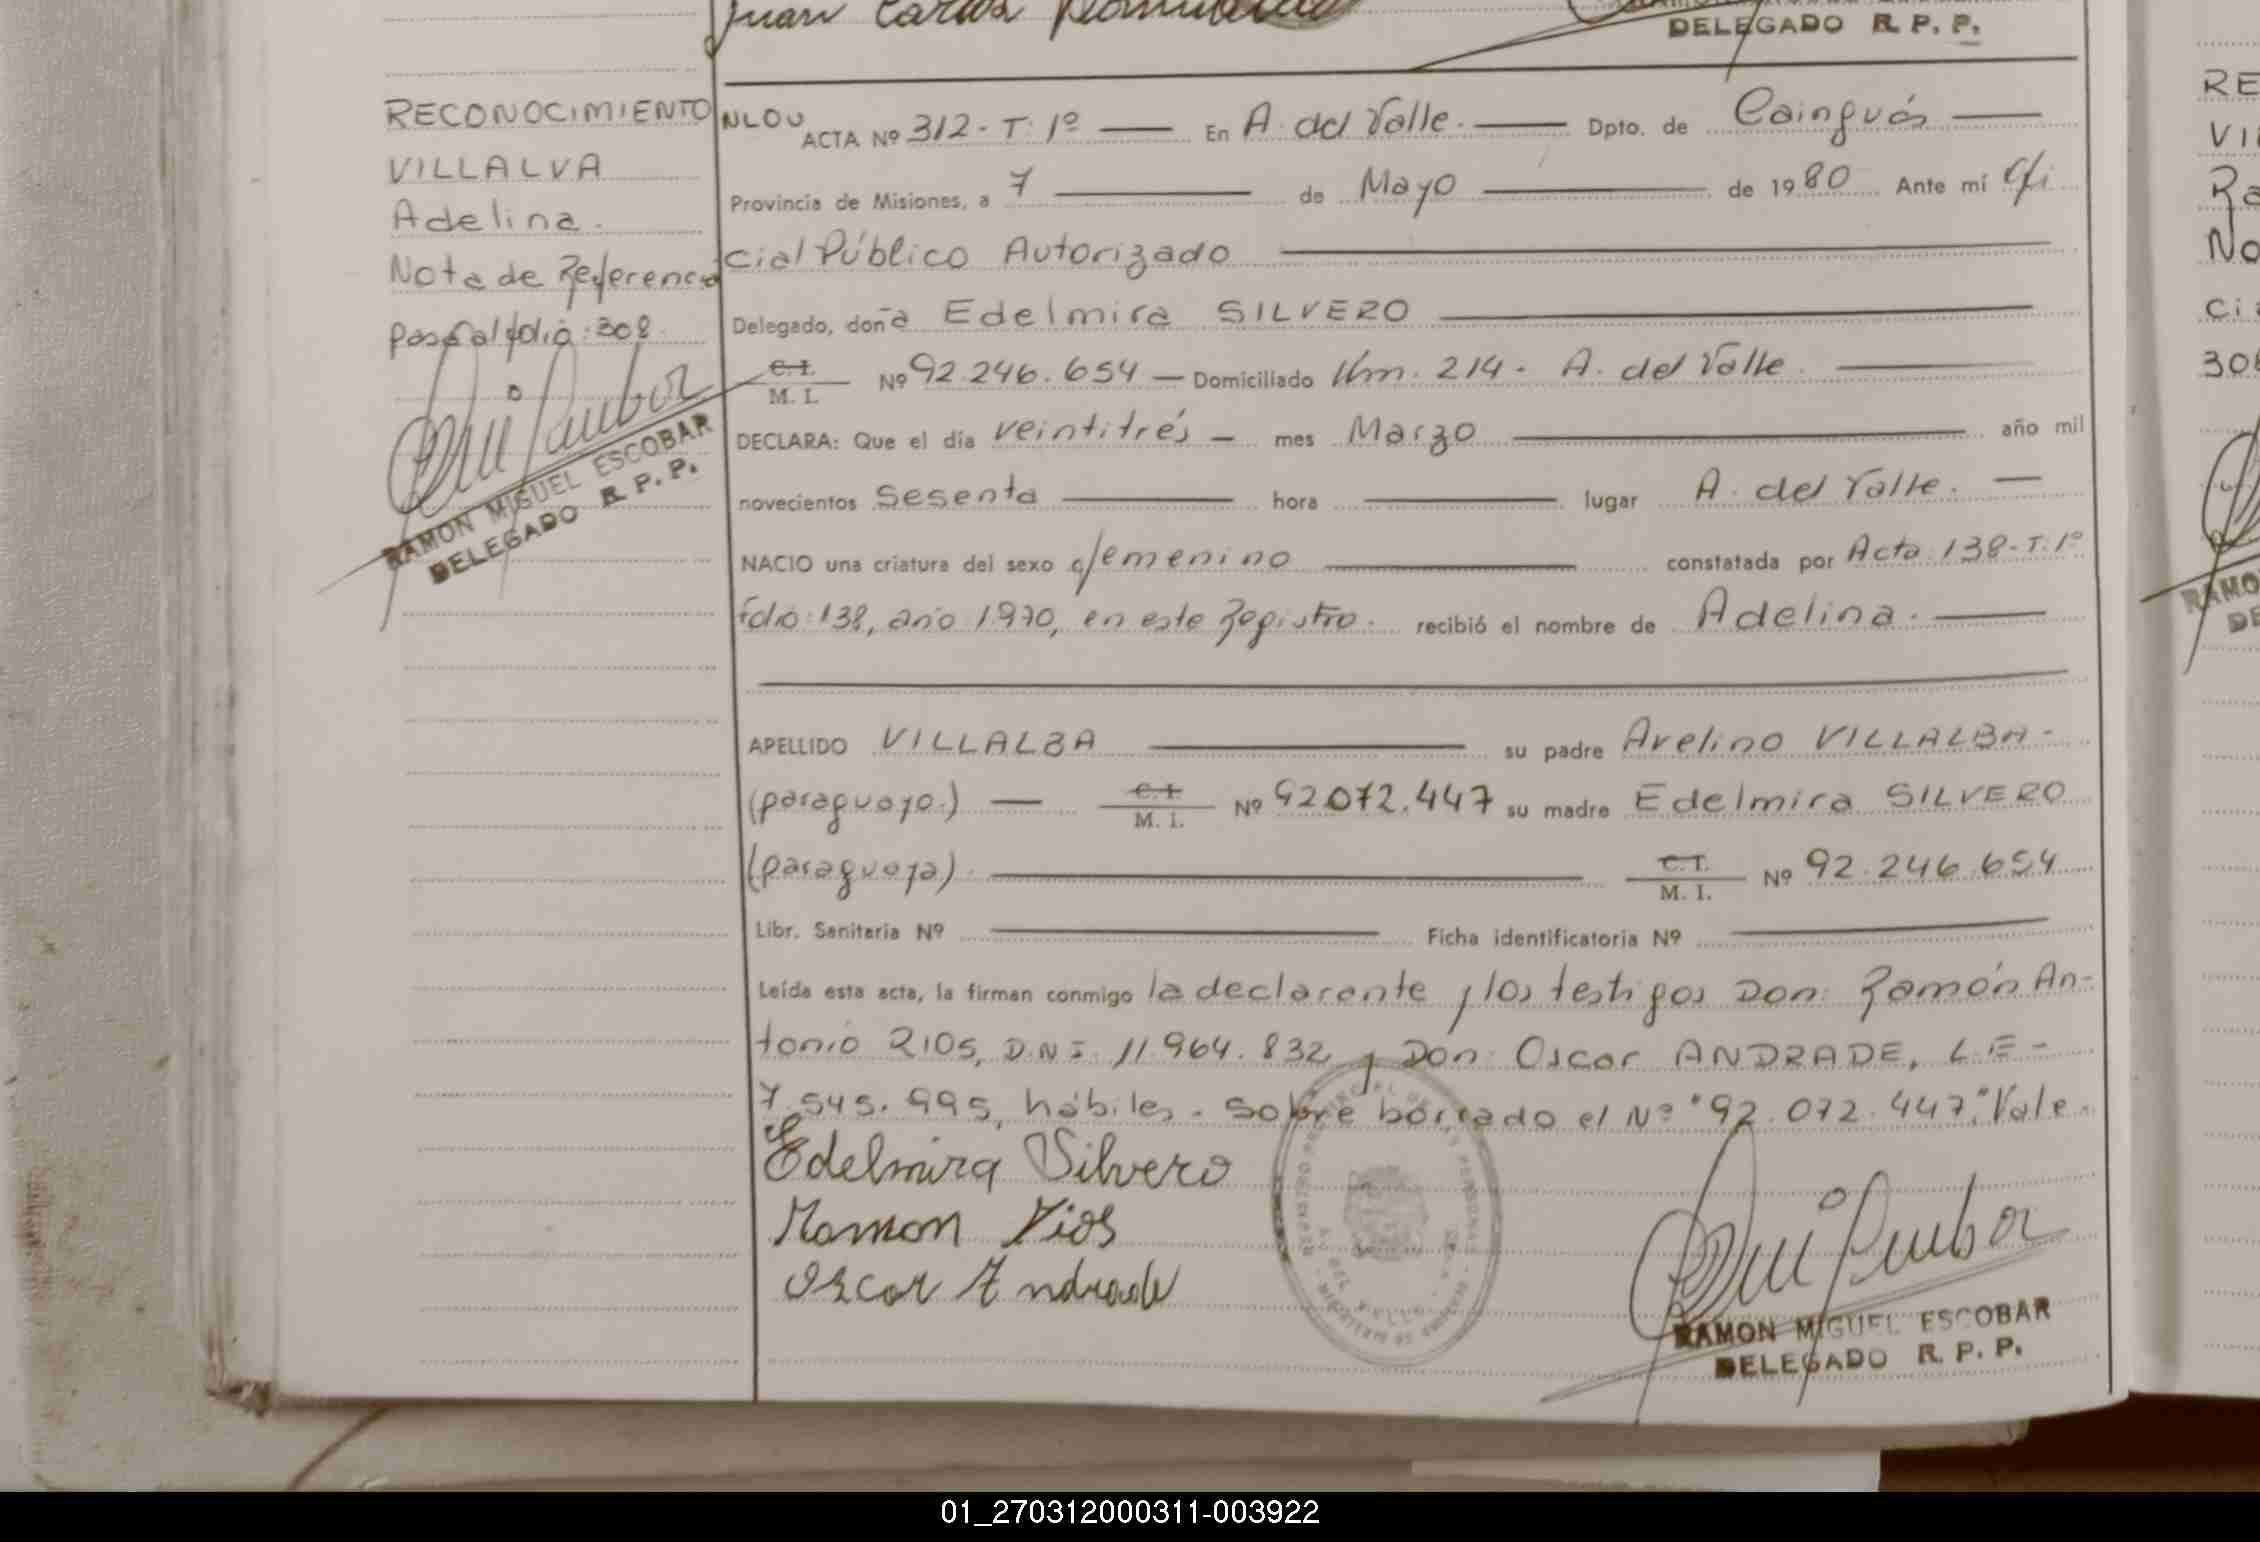 Juan Carlos
DELEGADO R. P. P.
RECONOCIMIENTO
VILLALVA
Adelina.
Nota de Referencia
pasó al folio: 308.
RAMON MIGUEL ESCOBAR
DELEGADO R. P. P.
NLOU
ACTA Nº 312 - T. 1º — En A. del Valle. — Dpto. de Cainguás —
Provincia de Misiones, a 7 — de Mayo — de 1980 Ante mí Ofi
cial Público Autorizado —
Delegado, doña Edelmira SILVERO —
C. I.
M. I. Nº 92.246.654 — Domiciliado Km. 214 - A. del Valle. —
DECLARA: Que el día veintitrés — mes Marzo — año mil
novecientos Sesenta — hora — lugar A. del Valle. —
NACIO una criatura del sexo femenino — constatada por Acta: 138 - T. 1º
folio: 138, año 1970, en este Registro. recibió el nombre de Adelina. —
APELLIDO VILLALBA — su padre Avelino VILLALBA -
(paraguayo.) — C. I.
M. I. Nº 92.072.447 su madre Edelmira SILVERO
(paraguaya) — C. I.
M. I. Nº 92.246.654
Libr. Sanitaria Nº — Ficha identificatoria Nº —
Leída esta acta, la firman conmigo la declarente y los testigos Don: Ramón An-
tonio RIOS, D.N.I. 11.964.832, y Don: Oscar ANDRADE, L.E -
7.545.995, hábiles. - Sobre borrado el Nº "92.072.447": Vale. -
Edelmira Silvero
Ramon Rios
Oscar Andrade
RAMON MIGUEL ESCOBAR
DELEGADO R. P. P.
RE
VI
Ra
No
ci
308
RAMO
DE
01_270312000311-003922